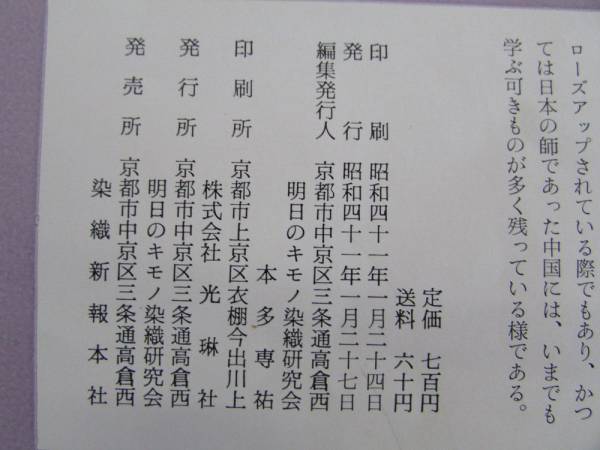 ローズアップされている際でもあり、かつ
ては日本の師であった中国には、いまでも
学ぶ可きものが多く残っている様である。
定価 七百円
送料 六十円
印刷 昭和四十一年一月二十四日
発行 昭和四十一年一月二十七日
編集発行人 京都市中京区三条通高倉西
明日のキモノ染織研究会
本多専祐
印刷所 京都市上京区衣棚今出川上
株式会社 光琳社
発行所 京都市中京区三条通高倉西
明日のキモノ染織研究会
発売所 京都市中京区三条通高倉西
染織新報本社